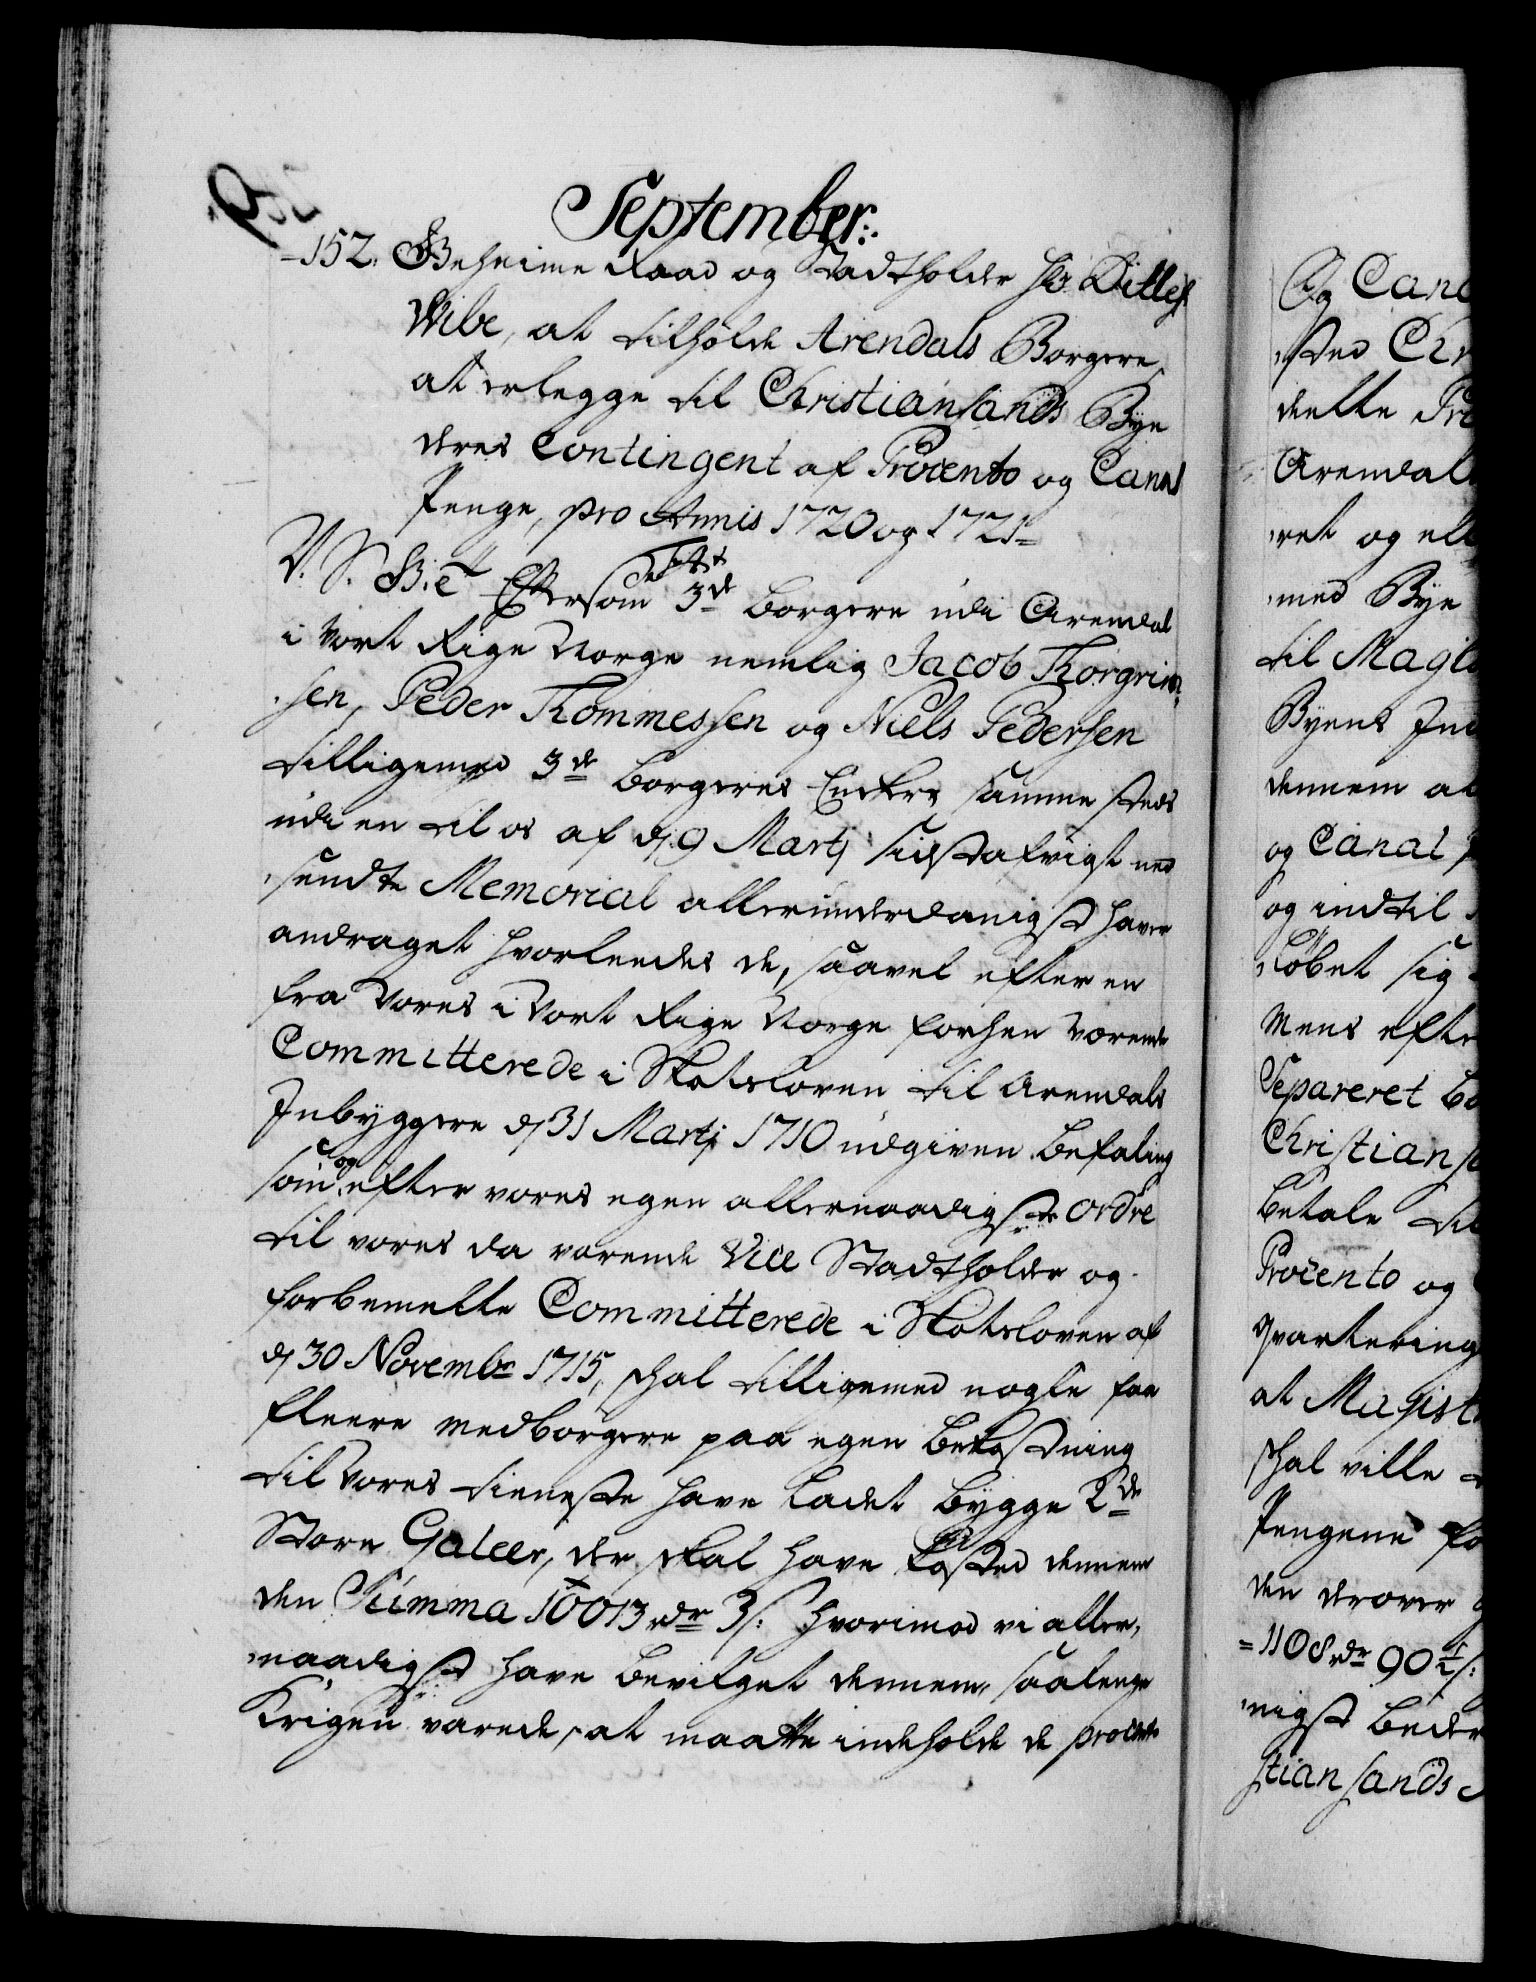 September:
152. Geheime Raad og Stadtholder Hr Ditlef
Wibe, at tilholde Arendals Borgere,
at erlegge til Christiansands Bye
deres Contingent af Procento og Canal
Penge, pro Annis 1720 og 1721
V. S. G. E. Eftersom 3de Borgere udi Arendal
i Vort Rige Norge nemlig Jacob Torgrim
sen, Peder Thommessen og Niels Pedersen
tilligemed 3de Borgeres Enker samme steds
udi en til os af d 9 Martj sidst afvigt ned
sendte Memorial allerunderdanigst haver
andraget hvorledes de, saavel efter en
fra Vores i Vort Rige Norge forhen værende
Committerede i Slotsloven til Arendals
Inbyggere d 31 Martj 1710 udgiven Befaling
som og efter vores egen allernaadigste ordre
til vores da værende Vice Stadtholder og
forbemelte Committerede i Slotsloven af
d 30 Novembr 1715, skal tilligemed nogle faa
fleere medborgere paa egen Bekostning
til Vores tieneste have ladet bygge 2de
store Galeer, der skal have kosted dennem
den Summa 10013 rdr 3 s: hvorimod vi aller,
naadigst have bevilget dennem, saalenge
Krigen varede, at maatte indeholde de procento
Og Cana
sted Chr
deelte Pro
Arendal
ret og
med Bye
til Magi
Byens In
dennem at
og Canal
og indtil
løbet sig
Mens efter
Separeret
Christiansa
betale til
Procento og
qvartering
at Magist
skal ville
Pengene fo
den derover
=1108 rdr 90½ s:
nigst beder
stiansands